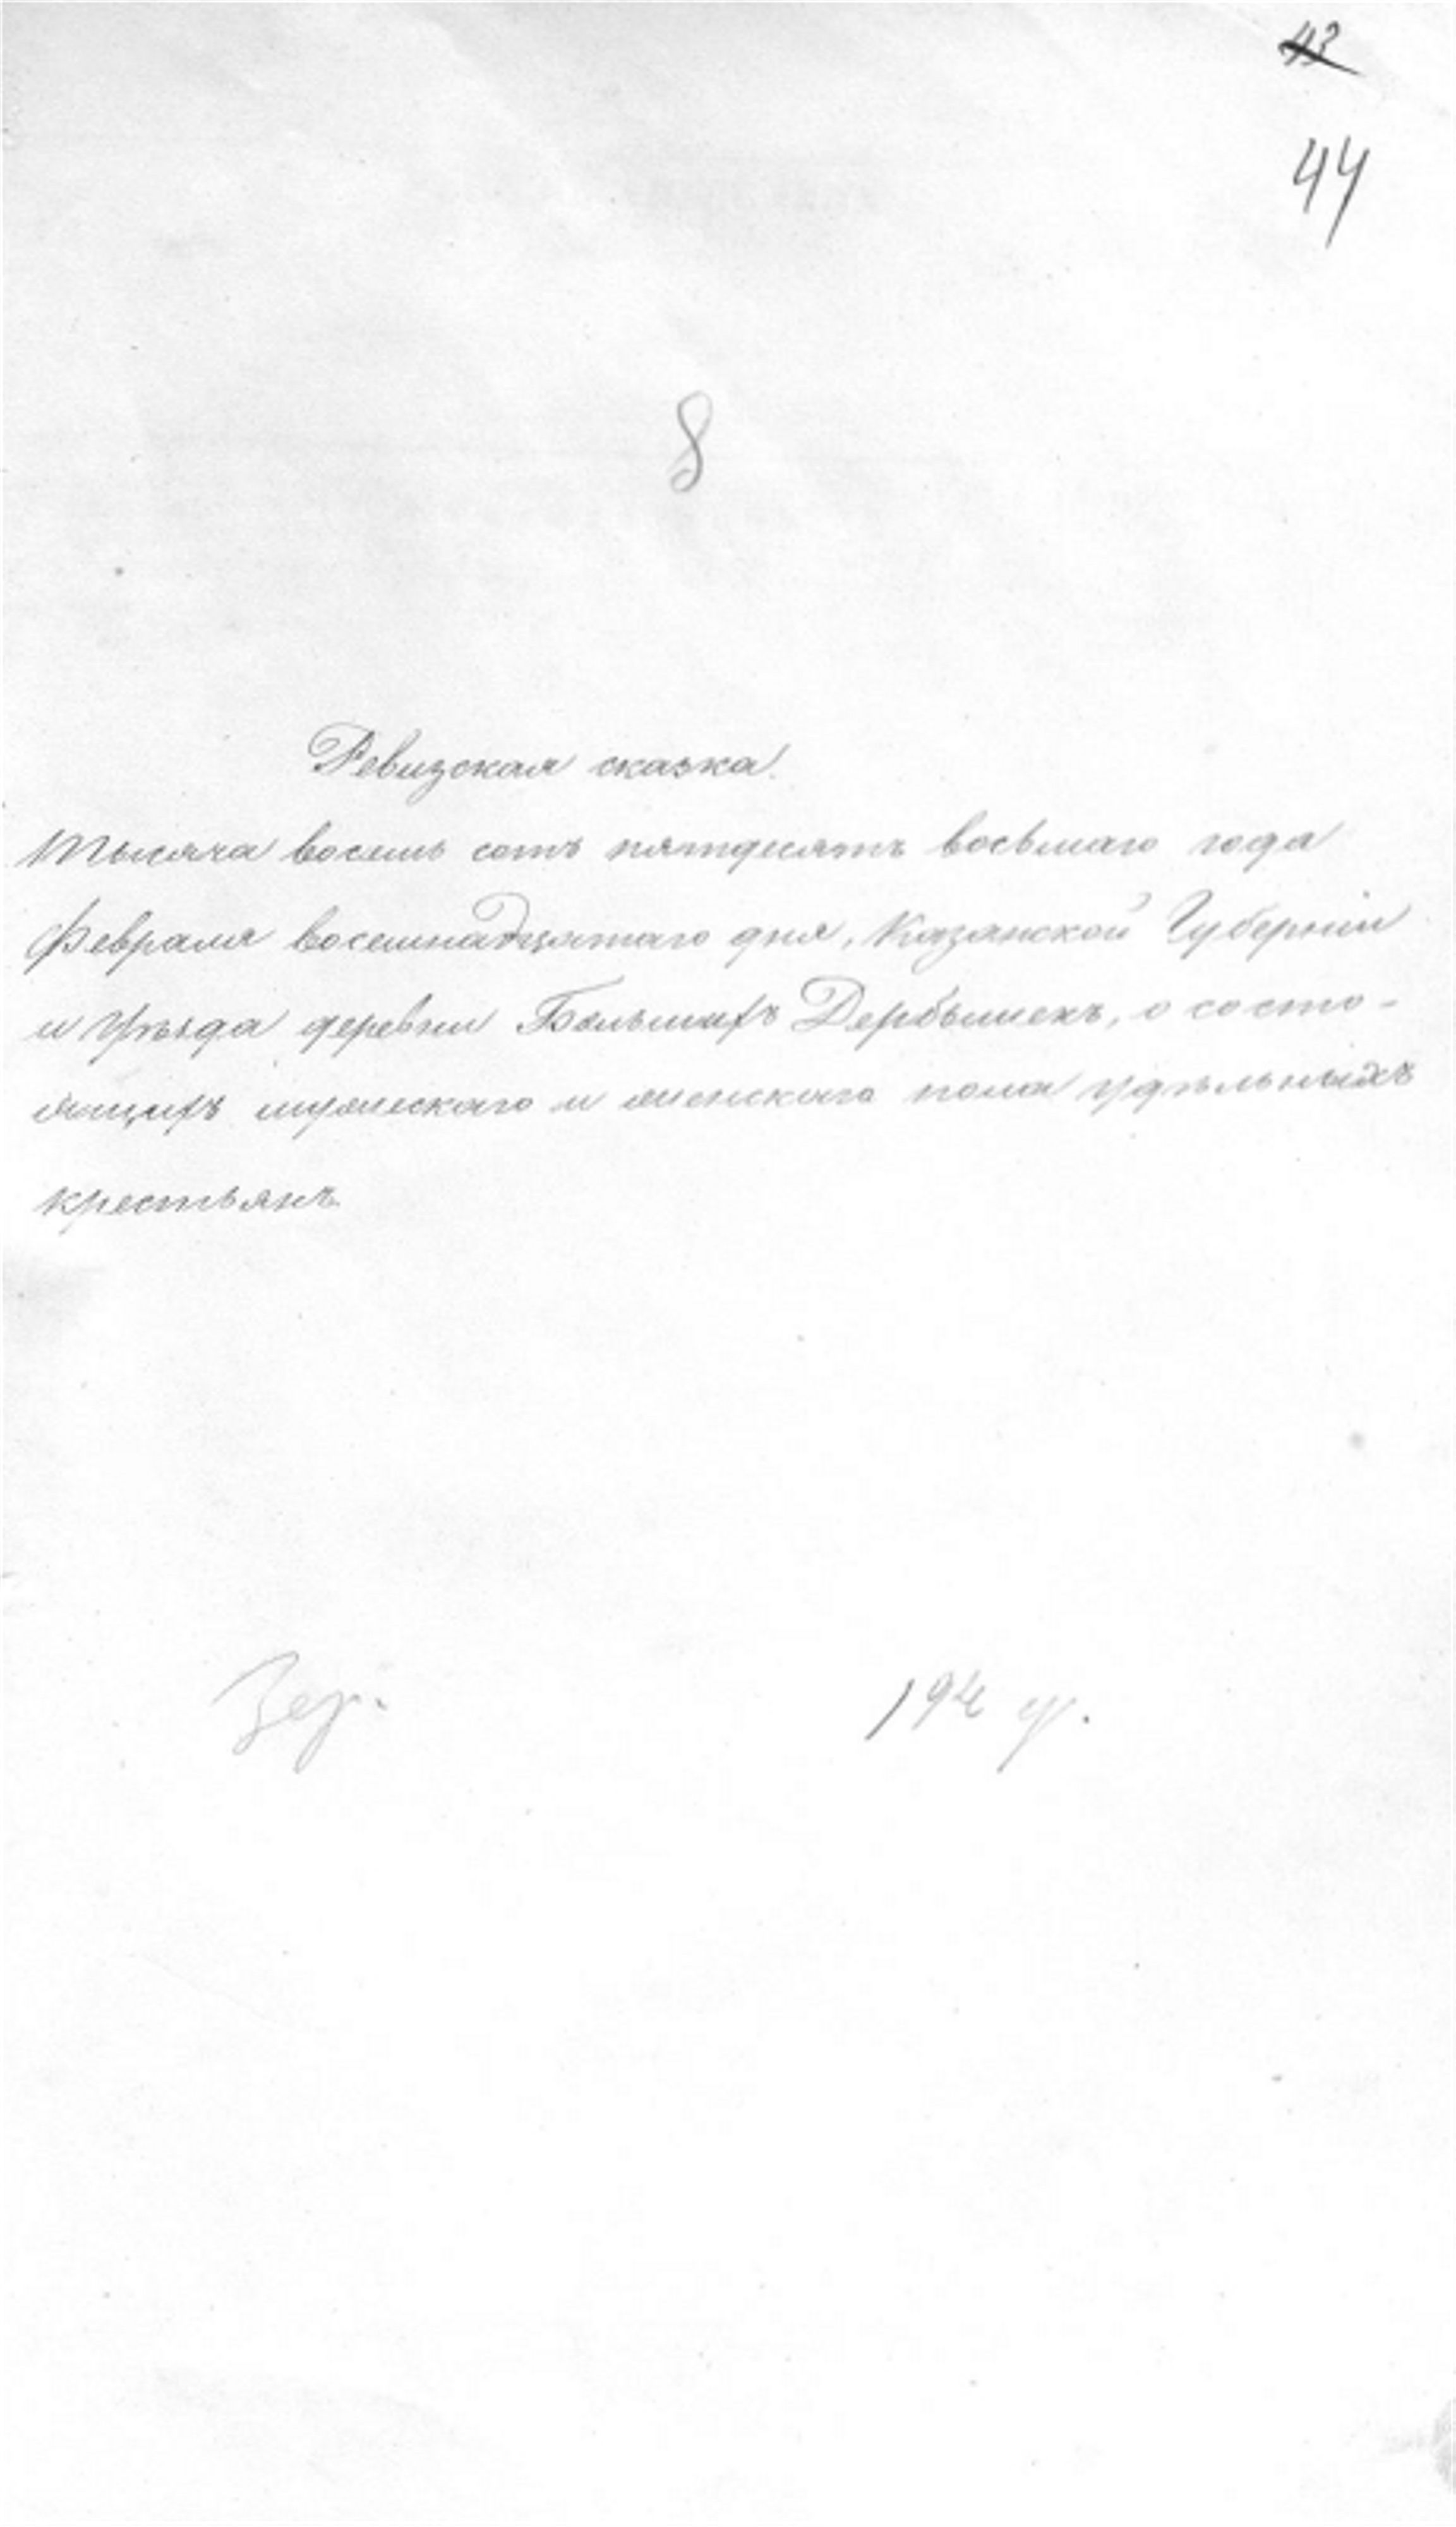 43
44
8
Ревизская сказка.
Тысяча восемь сотъ пятдесятъ восьмаго года
Февраля восемнадцатаго дня, Казанской Губерніи
и Уѣзда деревни Большихъ Дербышекъ, о состо-
ящихъ мужескаго и женскаго пола удѣльныхъ
крестьянъ